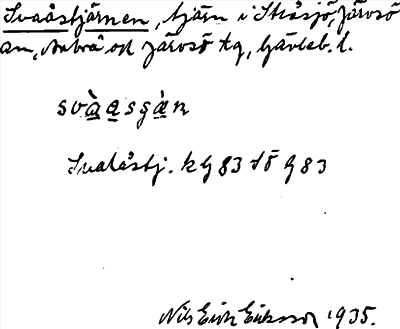 Svaåstjärnen, tjärn i Stråsjö, Järvsö
an, Arbrå och Järvsö tg, Gävleb. l.
svà̱a̱sgä̱̀n
Svalåstj. kg 83 SÖ G 83
Nils Erik Eriksson 1935.